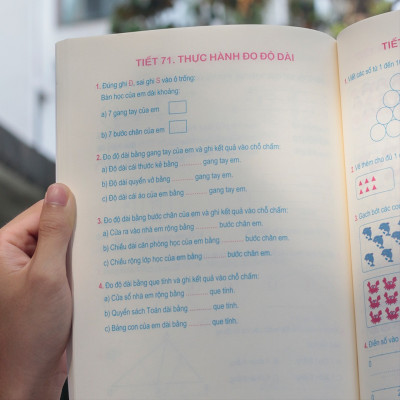 TIẾT 71. THỰC HÀNH ĐO ĐỘ DÀI
1. Đúng ghi Đ, sai ghi S vào ô trống:
Bàn học của em dài khoảng:
a) 7 gang tay của em
b) 7 bước chân của em
2. Đo độ dài bằng gang tay của em và ghi kết quả vào chỗ chấm:
a) Độ dài cái thước kẻ bằng ............ gang tay em.
b) Độ dài quyển vở bằng ............ gang tay em.
c) Độ dài cái áo của em bằng ............ gang tay em.
3. Đo độ dài bằng bước chân của em và ghi kết quả vào chỗ chấm:
a) Cửa ra vào nhà em rộng bằng ............ bước chân em.
b) Chiều dài căn phòng học của em bằng ............ bước chân em.
c) Chiều rộng lớp học của em bằng ............ bước chân em.
4. Đo độ dài bằng que tính và ghi kết quả vào chỗ chấm:
a) Cửa sổ nhà em rộng bằng ............ que tính.
b) Quyển sách Toán dài bằng ............ que tính.
c) Bảng con của em dài bằng ............ que tính.
TIẾT
1. Viết các số từ 1 đến
2. Vẽ thêm cho đủ 1
3. Gạch bớt các con
4. Điền số vào
0